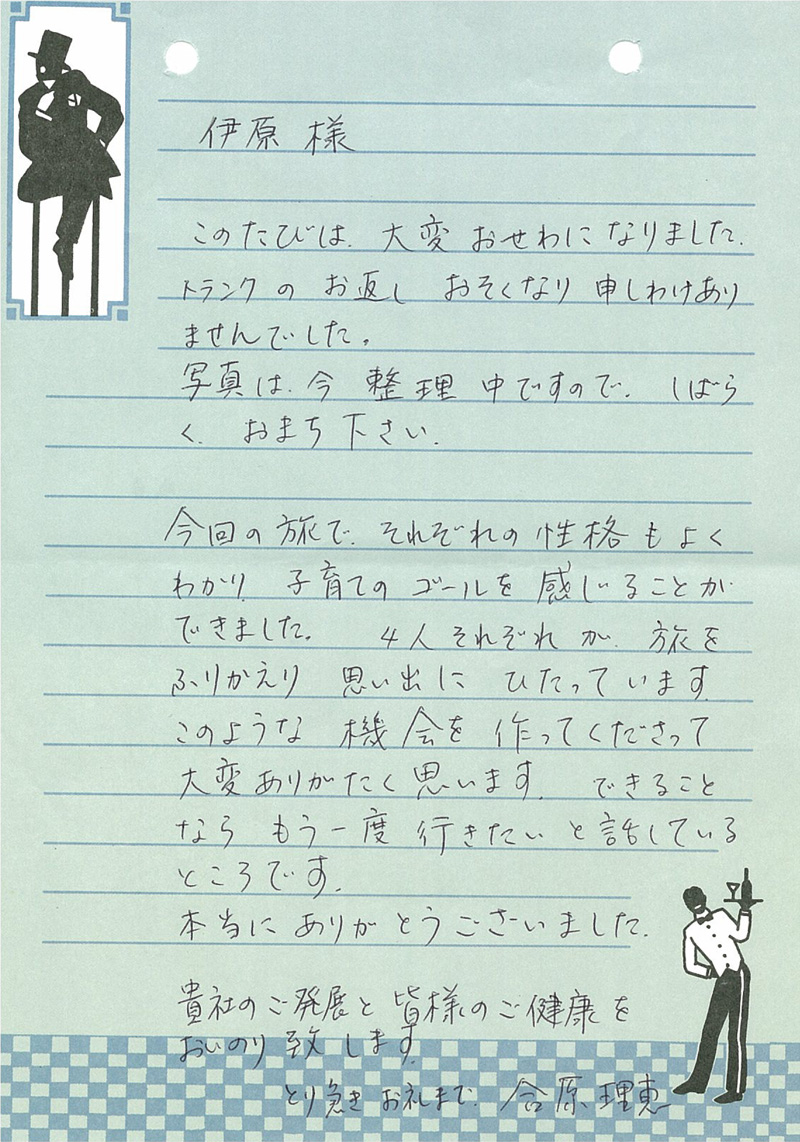 伊原 様
このたびは、大変 おせわに なりました。
トランクの お返し おそくなり 申しわけあり
ませんでした。
写真は、今 整理 中ですので、しばら
く、おまち 下さい。
今回の 旅で、それぞれの 性格も よく
わかり、子育ての ゴールを 感じることが
できました。 4人それぞれが、旅を
ふりかえり 思い出に ひたっています。
このような 機会を 作ってくださって
大変ありがたく思います。 できること
なら もう一度 行きたい と話している
ところです。
本当に ありがとうございました。
貴社のご発展と 皆様のご健康を
おいのり 致します。
とり急ぎ お礼まで、合原 理恵